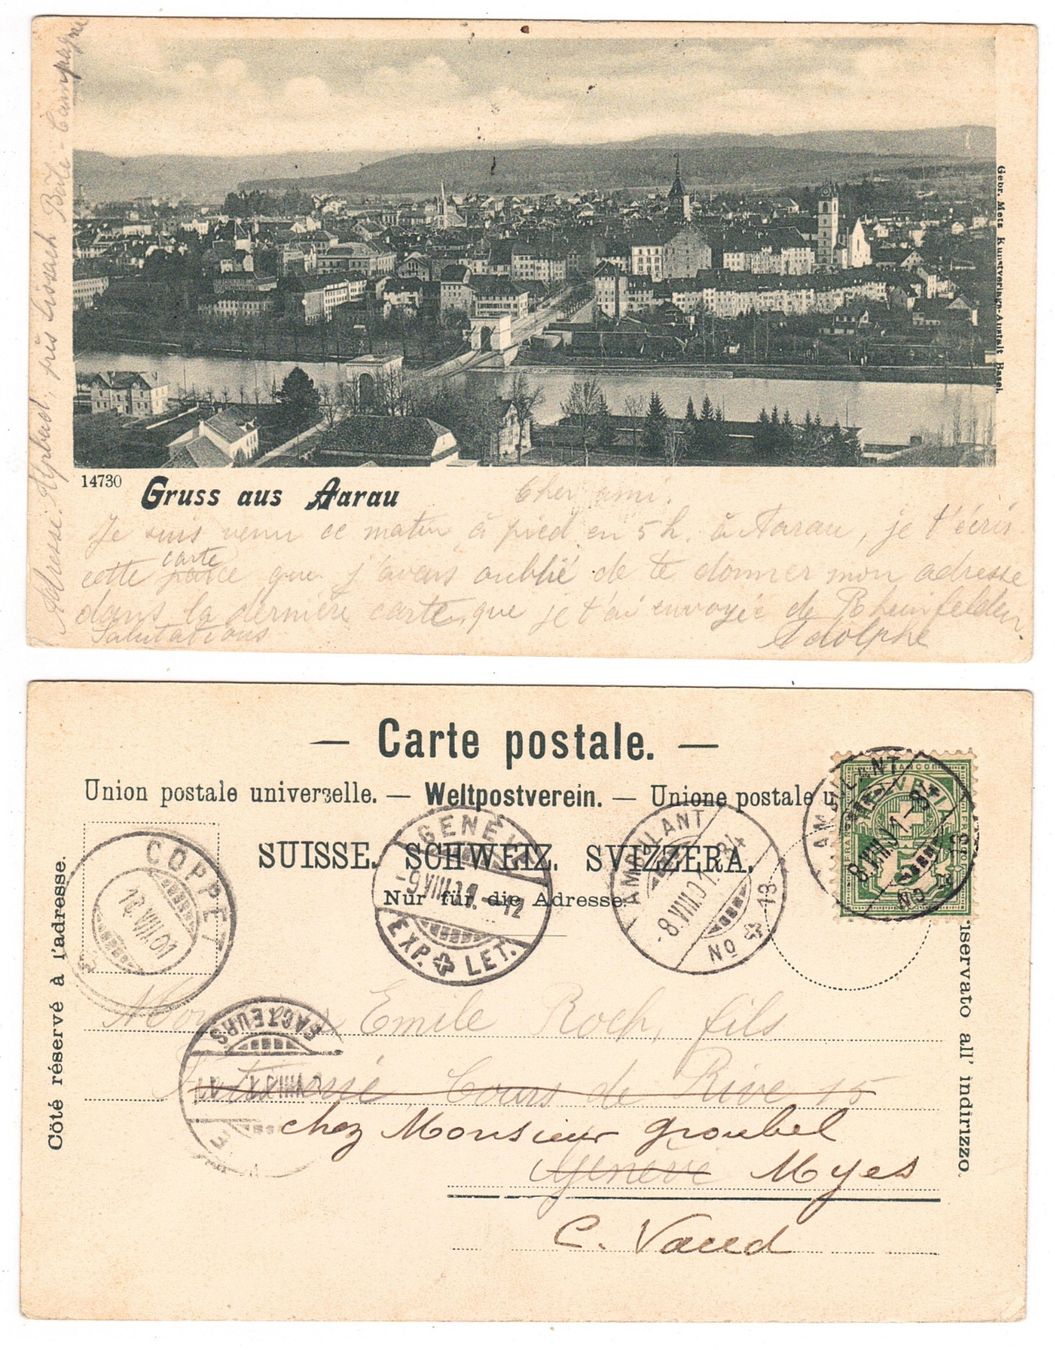 Adresse: Alpbad, près Sissach Bâle-Campagne
Gebr. Metz Kunstverlags-Anstalt Basel.
14730 Gruss aus Aarau
Cher ami.
Je suis venu ce matin à pied en 5 h. à Aarau, je t'écris
carte
cette parce que j'avais oublié de te donner mon adresse
dans la dernière carte, que je t'ai envoyée de Rheinfelden.
Salutations Adolphe
— Carte postale. —
Union postale universelle. — Weltpostverein. — Unione postale u
SUISSE. SCHWEIZ. SVIZZERA.
Nur für die Adresse.
Côté réservé à l'adresse.
COPPET
10.VIII.01
GENÈVE
-9.VIII.01.-12
EXP. LET.
AMBULANT
-8.VIII.01.
No 13
AMBULANT
8.VIII.01.-8
No
FRANCO
HELVETIA
5
servato all' indirizzo.
FACTEURS
VIII
Emile Roch, fils
Cours de Rive 15
chez Monsieur Groubel
Genève Myes
C. Vaud